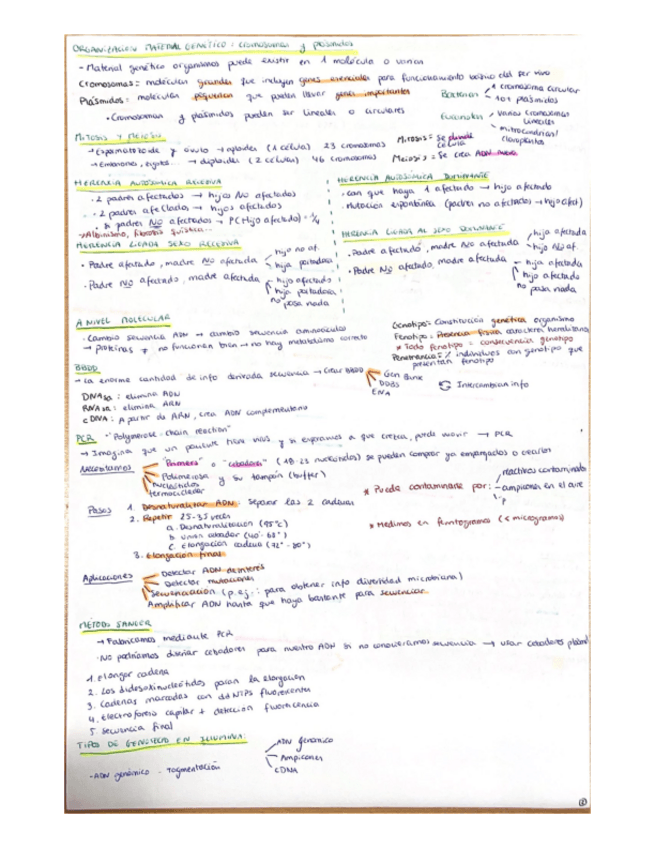 ORGANIZACIÓN MATERIAL GENÉTICO: cromosomas y plásmidos
- Material genético organismos puede existir en 1 molécula o varias
Cromosomas = moléculas grandes que incluyen genes esenciales para funcionamiento básico del ser vivo
Plásmidos: moléculas pequeñas que pueden llevar genes importantes
• Cromosomas y plásmidos pueden ser lineales o circulares
Bacterias
1 cromosoma circular
10+ plásmidos
Eucariotas
varios cromosomas lineales
mitocondrias/
cloroplastos
MITOSIS Y MEIOSIS
→ Espermatozoide y óvulo → haploides (1 célula) 23 cromosomas
→ Embriones, cigotos... → diploides (2 células) 46 cromosomas
Mitosis = se divide célula
Meiosis = Se crea ADN nuevo
HERENCIA AUTOSÓMICA RECESIVA
· 2 padres afectados → hijos No afectados
· 2 padres afectados → hijos afectados
• si padres NO afectados → P(Hijo afectado) = 1/4
→ Albinismo, fibrosis quística...
HERENCIA AUTOSÓMICA DOMINANTE
- con que haya 1 afectado → hijo afectado
• Mutación espontánea (padres no afectados → hijo afect)
HERENCIA LIGADA SEXO RECESIVA
• Padre afectado, madre NO afectada
hijo no af.
hija portadora
• Padre NO afectado, madre afectada
hijo afectado
hija portadora
no pasa nada
HERENCIA LIGADA AL SEXO DOMINANTE
• Padre afectado, madre NO afectada
hija afectada
hijo NO af.
• Padre NO afectado, madre afectada
hija afectada
hijo afectado
no pasa nada
A NIVEL MOLECULAR
• Cambio secuencia ADN → cambio secuencia aminoácidos
→ proteínas ≠ no funcionan bien → no hay metabolismo correcto
Genotipo = Constitución genética organismo
Fenotipo = Presencia física carácter hereditario
* Todo fenotipo = consecuencia genotipo
Penetrancia = % individuos con genotipo que
presentan fenotipo
BBDD
→ La enorme cantidad de info derivada secuencia → crear BBDD
Gen Bank
DDBJ
ENA
Intercambian info
DNAsa: elimina ADN
RNAsa: elimina ARN
cDNA: A partir de ARN, crea ADN complementario
PCR "Polymerase chain reaction"
→ Imagina que un paciente tiene virus, y si esperamos a que crezca, puede morir → PCR
Necesitamos
"Primers" o "cebadores" (18-25 nucleótidos) se pueden comprar ya
Polimerasa y su tampón (buffer)
Nucleótidos
termociclador
* Puede contaminarse por:
reactivos contaminados
amplicones en el aire
Pasos
1. Desnaturalizar ADN: separar las 2 cadenas
2. Repetir 25-35 veces
a. Desnaturalización (95°C)
b. unión cebador (40°-68°)
c. Elongación cadena (72°-80°)
3. Elongación final
* Medimos en femtogramos (< microgramos)
Aplicaciones
Detectar ADN de interés
Detectar mutaciones
Secuenciación (p.ej.: para obtener info diversidad microbiana)
Amplificar ADN hasta que haya bastante para secuenciar
MÉTODO SANGER
→ Fabricamos mediante PCR
• No podríamos diseñar cebadores para nuestro ADN si no conociéramos secuencia → usar cebadores
1. Elongar cadena
2. Los didesoxinucleótidos paran la elongación
3. Cadenas marcadas con ddNTPs fluorescentes
4. Electroforesis capilar + detección fluorescencia
5. Secuencia final
TIPOS DE GENOTECA EN ILLUMINA:
ADN genómico
Amplicones
cDNA
• ADN genómico - Tagmentación